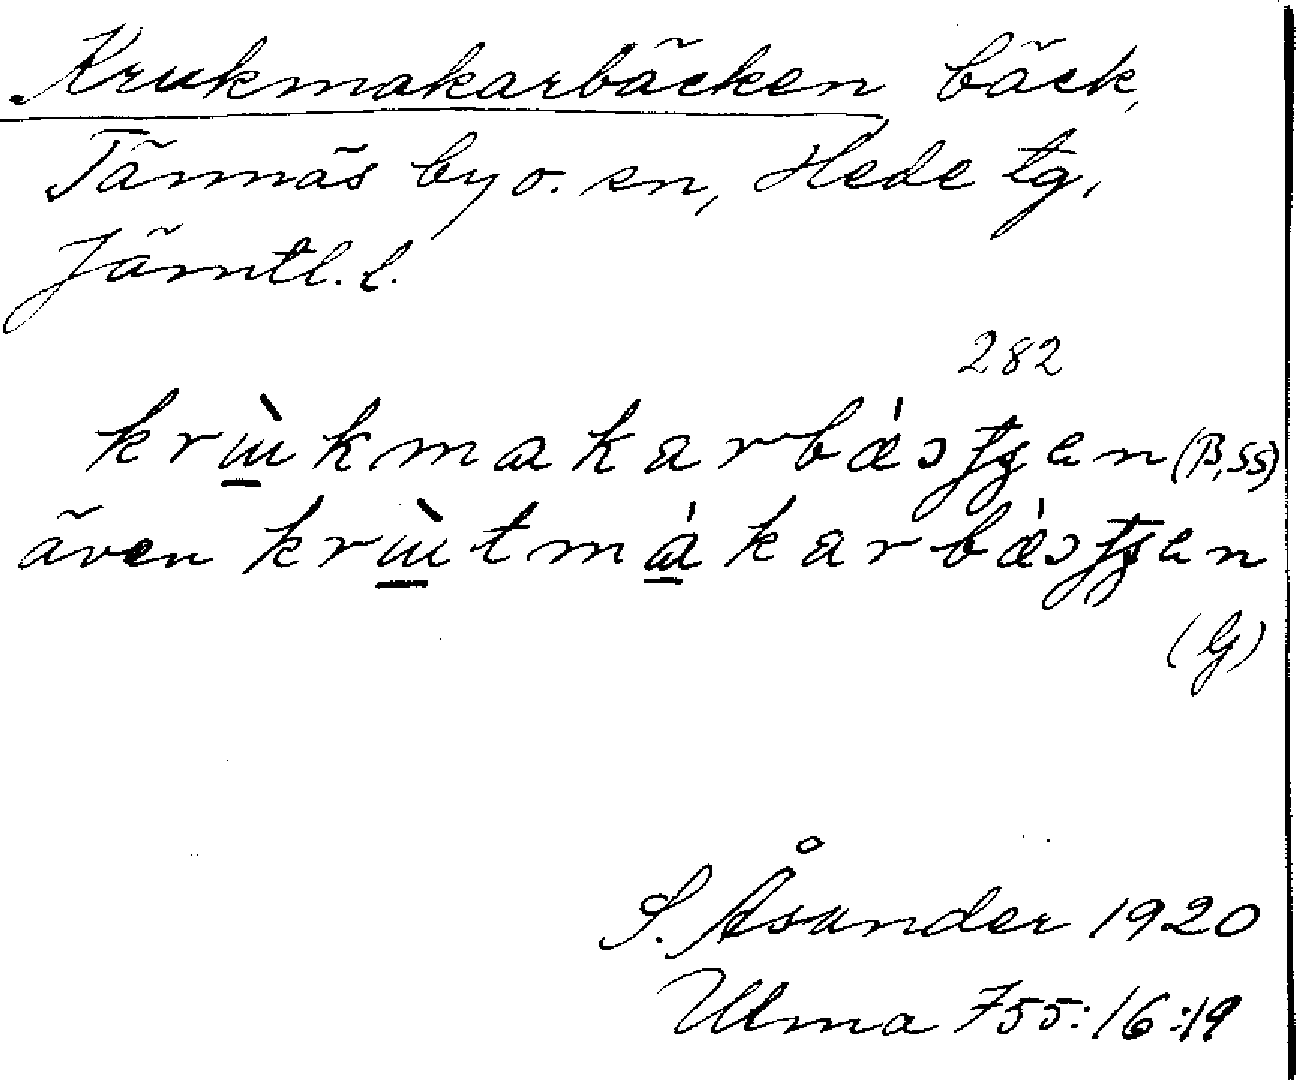 Krukmakarbäcken bäck,
Tännäs by o. sn, Hede tg,
Jämtl. l.
282
(B, SS)
även
(G)
S. Åsander 1920
Ulma 755:16:19